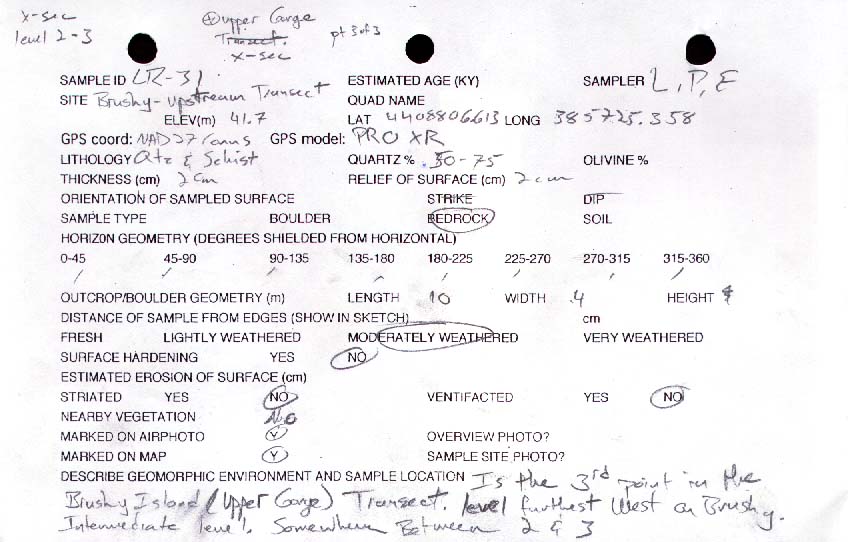 x-sec
level 2-3
upper Gorge
Transect.
x-sec
pt 3 of 3
SAMPLE ID LR-31 ESTIMATED AGE (KY) SAMPLER L, P, E
SITE Brushy-upstream Transect QUAD NAME
ELEV(m) 41.7 LAT 4408806613 LONG 385725.358
GPS coord: NAD27/conus GPS model: PRO XR
LITHOLOGY Qtz & Schist QUARTZ % 50-75 OLIVINE %
THICKNESS (cm) 2 cm RELIEF OF SURFACE (cm) 2 cm
ORIENTATION OF SAMPLED SURFACE STRIKE DIP
SAMPLE TYPE BOULDER BEDROCK SOIL
HORIZON GEOMETRY (DEGREES SHIELDED FROM HORIZONTAL)
0-45 45-90 90-135 135-180 180-225 225-270 270-315 315-360
OUTCROP/BOULDER GEOMETRY (m) LENGTH 10 WIDTH 4 HEIGHT
DISTANCE OF SAMPLE FROM EDGES (SHOW IN SKETCH) cm
FRESH LIGHTLY WEATHERED MODERATELY WEATHERED VERY WEATHERED
SURFACE HARDENING YES NO
ESTIMATED EROSION OF SURFACE (cm)
STRIATED YES NO VENTIFACTED YES NO
NEARBY VEGETATION No
MARKED ON AIRPHOTO Y OVERVIEW PHOTO?
MARKED ON MAP Y SAMPLE SITE PHOTO?
DESCRIBE GEOMORPHIC ENVIRONMENT AND SAMPLE LOCATION Is the 3rd point in the
Brushy Island (Upper Gorge) Transect. level furthest West on Brushy.
Intermediate level. Somewhere Between 2 & 3